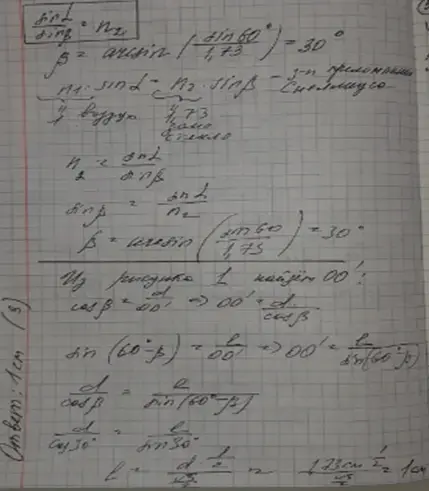 sinL/sinβ = n₂₁
β = arcsin(sin60°/1,73) = 30°
n₁·sinL = n₂·sinβ – з-н преломления Снеллиуса
1 воздух 1,73 стекло
n₂ = sinL/sinβ
sinβ = sinL/n₂
β = arcsin(sin60/1,73) = 30°
Из рисунка 1 найдём OO':
cosβ = d/OO' => OO' = d/cosβ
sin(60°-β) = l/OO' => OO' = l/sin(60°-β)
d/cosβ = l/sin(60°-β)
d/cos30° = l/sin30°
l = d 1/2 / √3/2 = 1,73см 1/2 / √3/2 = 1см
Ответ: 1см (3)